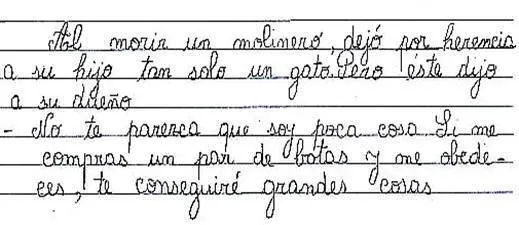 Al morir un molinero, dejó por herencia
a su hijo tan solo un gato. Pero éste dijo
a su dueño
- No te parezca que soy poca cosa Si me
compras un par de botas y me obede-
ces, te conseguiré grandes cosas